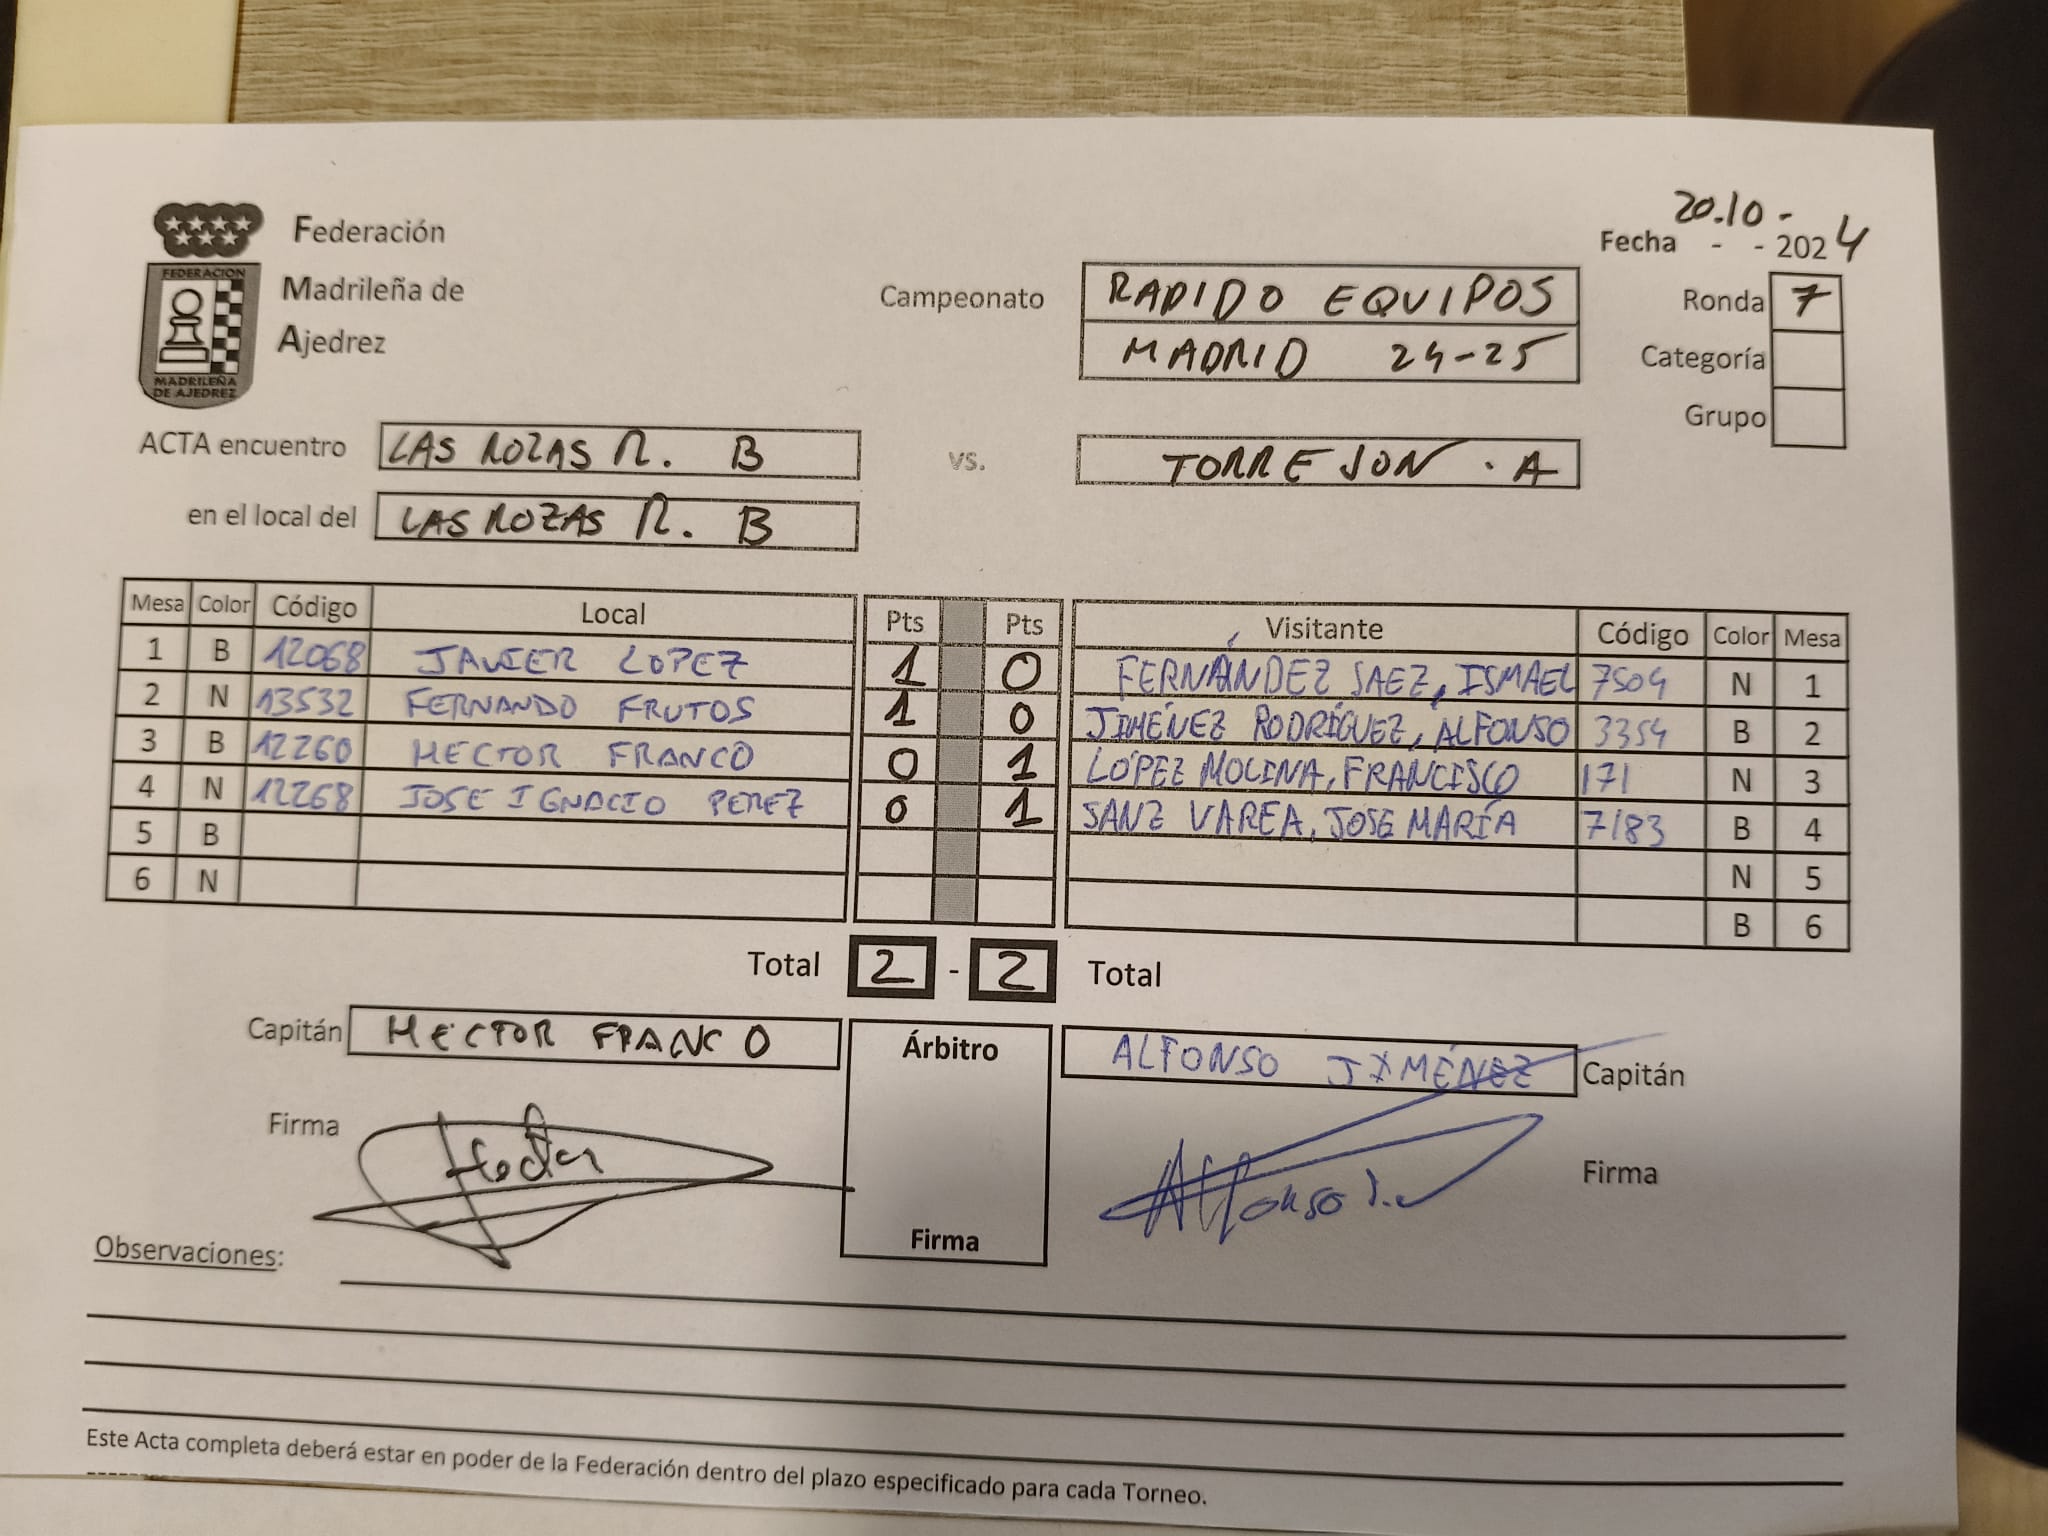 20.10-
Fecha - - 2024
Federación
Madrileña de
Ajedrez
FEDERACION
MADRILEÑA
DE AJEDREZ
Campeonato RAPIDO EQUIPOS
MADRID 24-25
Ronda 7
Categoría
Grupo
ACTA encuentro LAS ROZAS R. B vs. TORREJON . A
en el local del LAS ROZAS R. B
Mesa Color Código Local Pts Pts Visitante Código Color Mesa
1 B 12068 JAVIER LOPEZ 1 0 FERNÁNDEZ SAEZ, ISMAEL 7504 N 1
2 N 13532 FERNANDO FRUTOS 1 0 JIMÉNEZ RODRÍGUEZ, ALFONSO 3354 B 2
3 B 12260 HECTOR FRANCO 0 1 LÓPEZ MOLINA, FRANCISCO 171 N 3
4 N 12268 JOSE IGNACIO PEREZ 0 1 SANZ VAREA, JOSE MARÍA 7183 B 4
5 B N 5
6 N B 6
Total 2 - 2 Total
Capitán HECTOR FRANCO Árbitro ALFONSO JIMÉNEZ Capitán
Firma Hector Firma Alfonso J. Firma
Observaciones:
Este Acta completa deberá estar en poder de la Federación dentro del plazo especificado para cada Torneo.